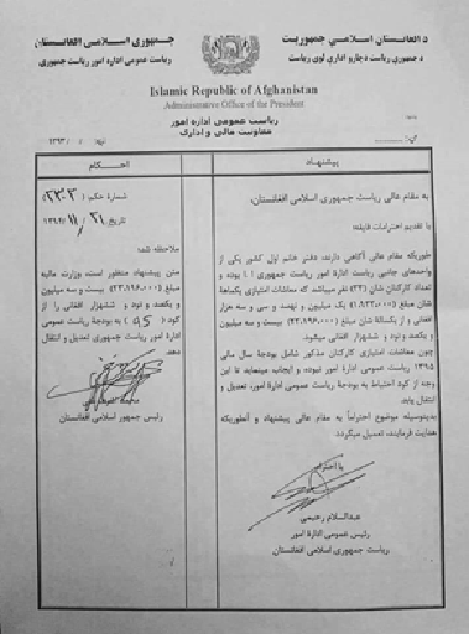 د افغانستان اسلامي جمهوریت
د جمهوري ریاست د چارو اداري لوی ریاست
جمهوری اسلامی افغانستان
ریاست عمومی ادارهٔ امور ریاست جمهوری
Islamic Republic of Afghanistan
Administrative Office of the President
ریاست عمومی اداره امور
معاونیت مالی و اداری
/ / ۱۳۹۳
پیشنهاد
به مقام عالی ریاست جمهوری اسلامی افغانستان،
با تقدیم احترامات فایقه؛
طوریکه مقام عالی آگاهی دارند، دفتر خانم اول کشور یکی از
واحدهای جانبی ریاست ادارهٔ امور ریاست جمهوری ا.ا بوده و
تعداد کارکنان شان نفر میباشد که معاشات امتیازی یکماههٔ
شان مبلغ (۱،۹۳۳،۰۰۰) یک میلیون و نهصد و سی و سه هزار
افغانی و از یکسالهٔ شان مبلغ (۲۳،۱۹۶،۰۰۰) بیست و سه میلیون
و یکصد و نود و ششهزار افغانی میشود.
چون معاشات امتیازی کارکنان مذکور شامل بودجهٔ سال مالی
۱۳۹۵ ریاست عمومی ادارهٔ امور نبوده، و ایجاب مینماید تا این
وجه از کود احتیاط به بودجهٔ ریاست عمومی ادارهٔ امور، تعدیل و
انتقال یابد.
بدینوسیله موضوع احتراماً به مقام عالی پیشنهاد و آنطوریکه
هدایت فرمایند، تعمیل میگردد.
با احترام
عبدالسلام رحیمی
رئیس عمومی ادارهٔ امور
ریاست جمهوری اسلامی افغانستان
احکام
شمارهٔ حکم: (۳۳۰۳)
تاریخ:
ملاحظه شد؛
متن پیشنهاد منظور است، وزارت مالیه
مبلغ (۲۳،۱۹۶،۰۰۰) بیست و سه میلیون
و یکصد و نود و ششهزار افغانی را از
کود (۹۵) به بودجهٔ ریاست عمومی
ادارهٔ امور ریاست جمهوری تعدیل و انتقال
دهد.
رئیس جمهور اسلامی افغانستان